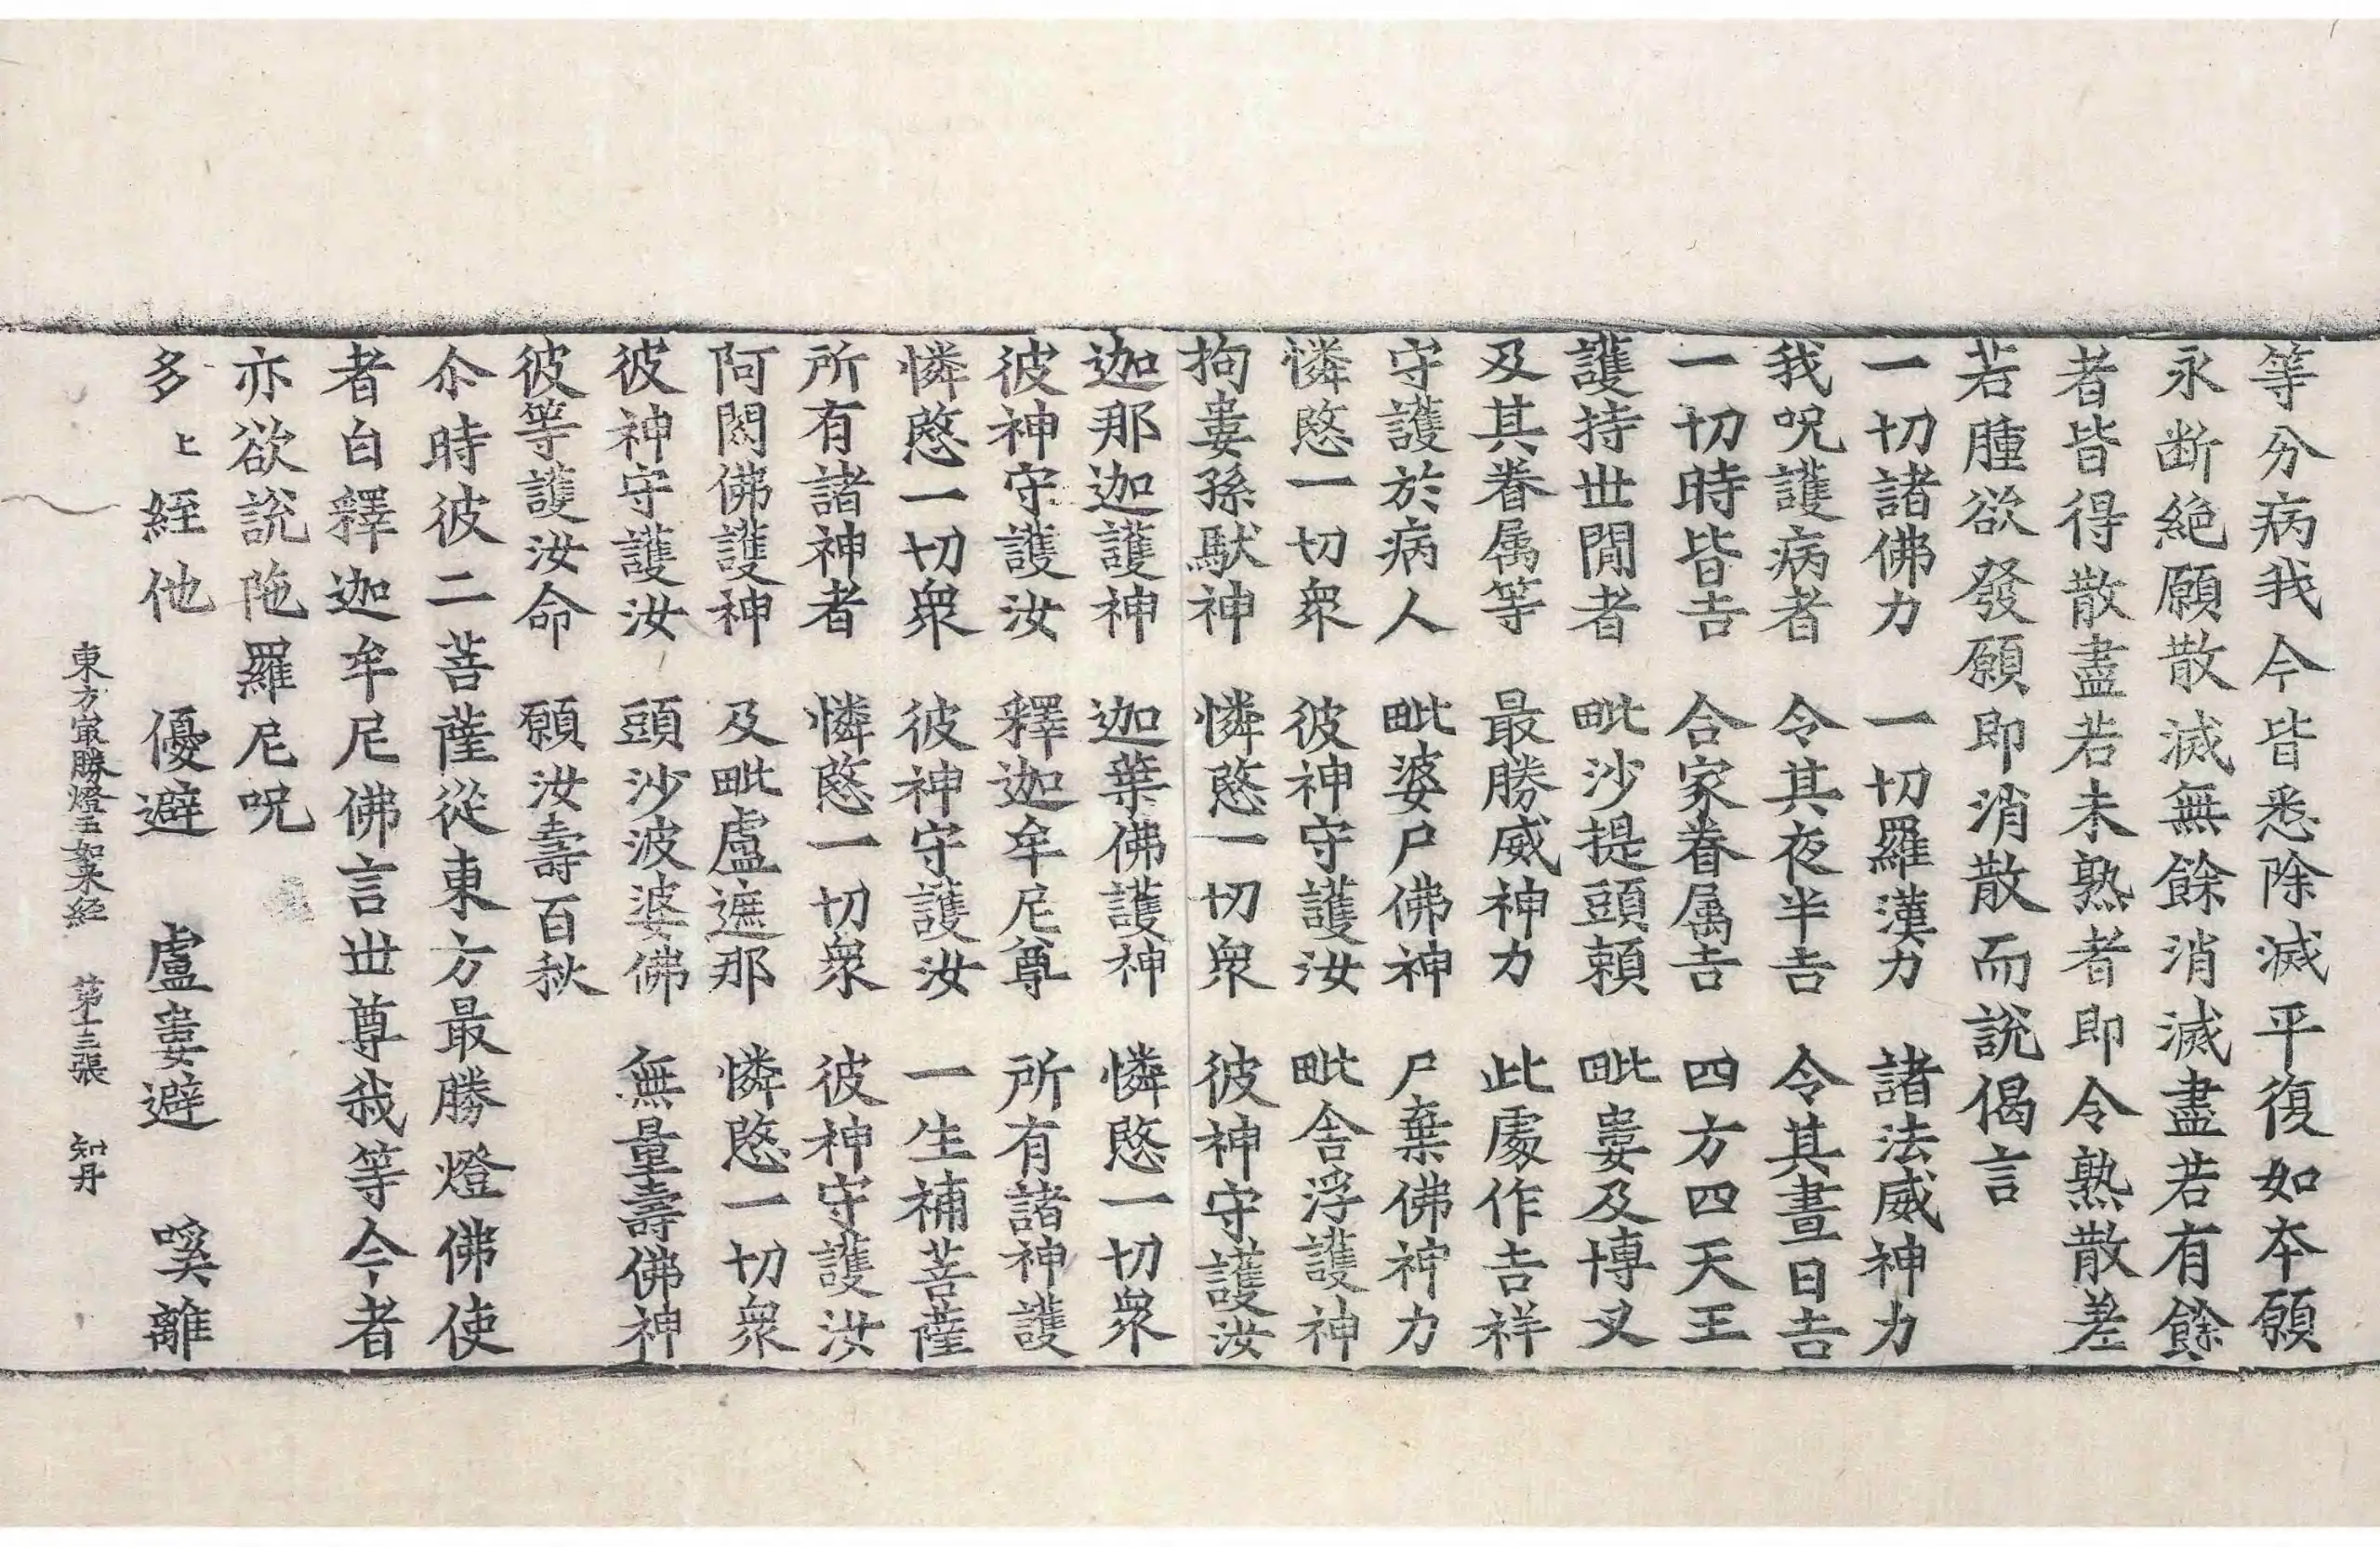 等分病我今皆悉除滅平復如本願
永断絶願散滅無餘消滅盡若有餘
者皆得散盡若未熟者即令熟散差
若腫欲發願即消散而說偈言
一切諸佛力　一切羅漢力　諸法威神力
我呪護病者　令其夜半吉　令其晝日吉
一切時皆吉　合家眷属吉　四方四天王
護持世閒者　毗沙提頭頼　毗婁及博叉
及其眷属等　最勝威神力　此處作吉祥
守護於病人　毗婆尸佛神　尸棄佛神力
憐愍一切衆　彼神守護汝　毗舎浮護神
拘婁孫馱神　憐愍一切衆　彼神守護汝
迦那迦護神　迦葉佛護神　憐愍一切衆
彼神守護汝　釋迦牟尼尊　所有諸神護
憐愍一切衆　彼神守護汝　一生補菩薩
所有諸神者　憐愍一切衆　彼神守護汝
阿閦佛護神　及毗盧遮那　憐愍一切衆
彼神守護汝　頭沙波婆佛　無量壽佛神
彼等護汝命　願汝壽百秋
尒時彼二菩薩從東方最勝燈佛使
者白釋迦牟尼佛言世尊我等今者
亦欲說陁羅尼呪
多上絰他　優避　盧婁避　嗘離
東方㝡勝燈王如来經　第十三張　知丹